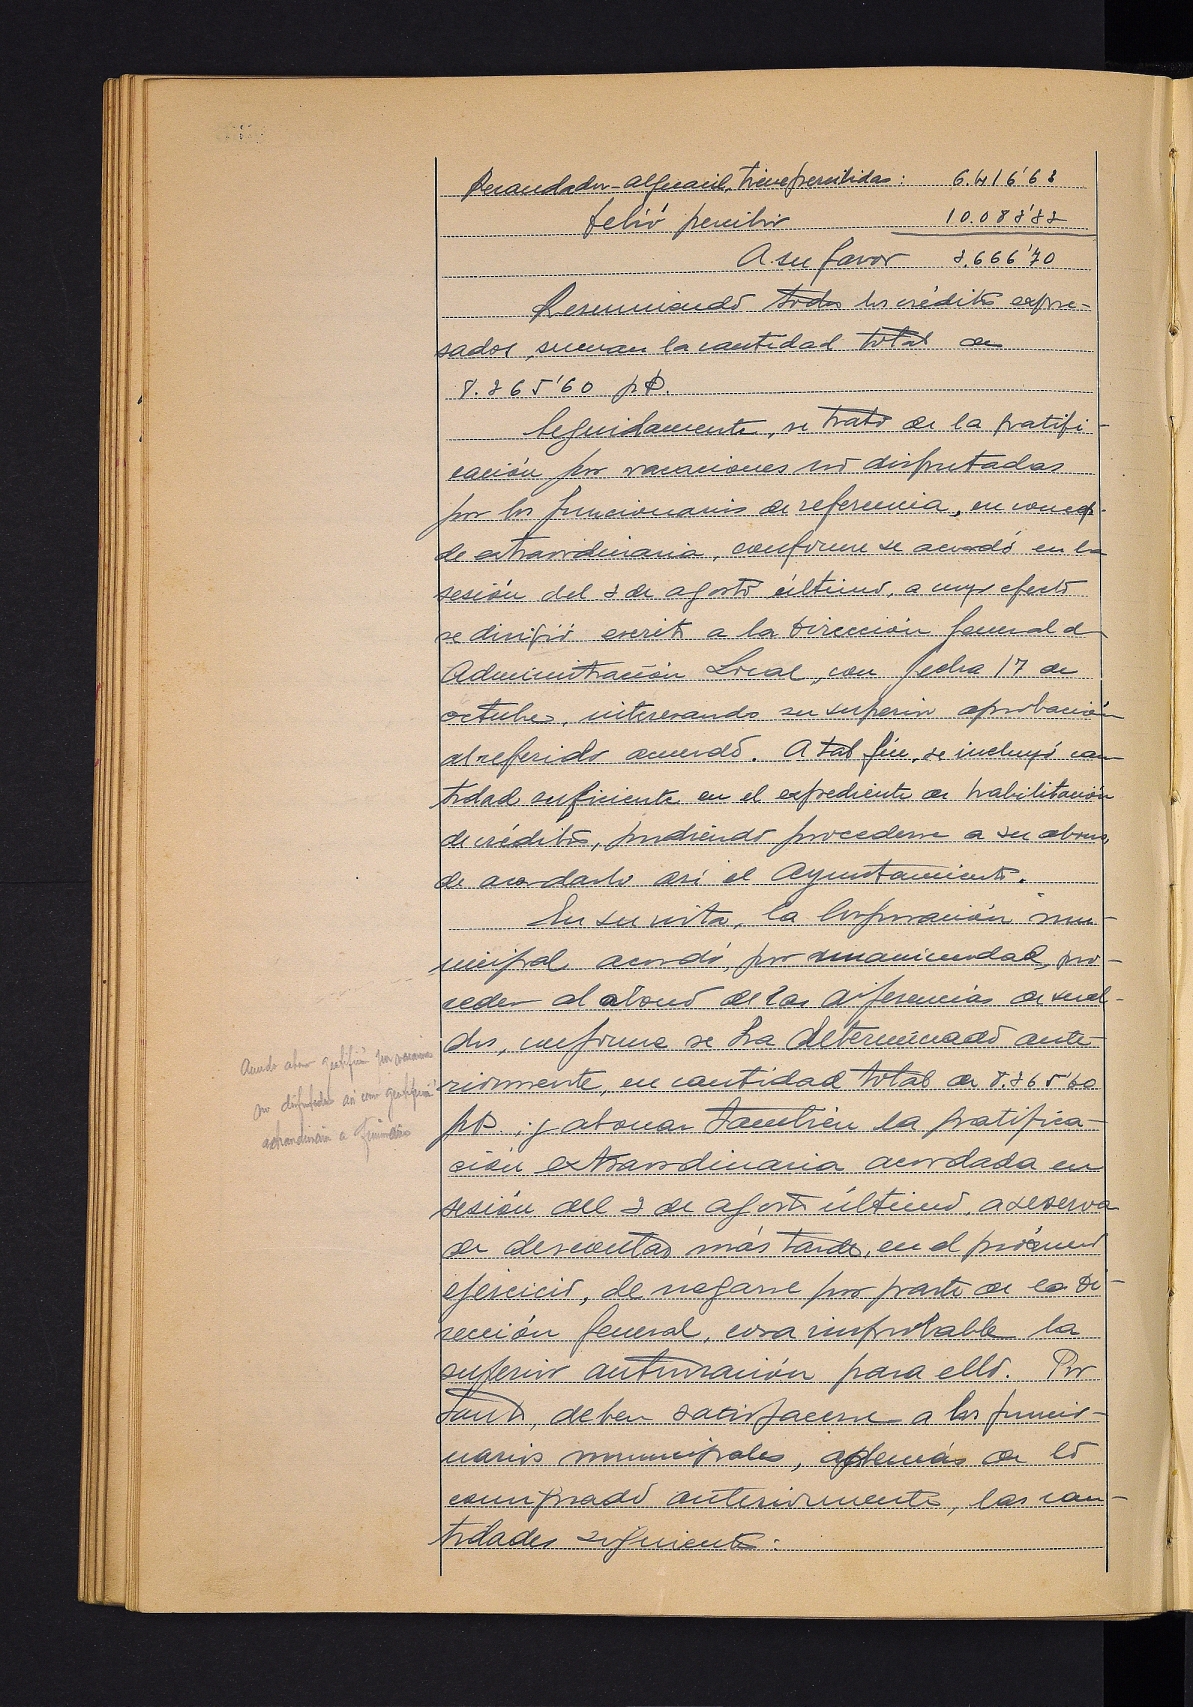 Recaudador-alguacil, tiene percibidas: 6.416'63
Debió percibir 10.083'33
A su favor 3.666'70
Resumiendo todos los créditos expre-
sados, suman la cantidad total de
8.365'60 pts.
Seguidamente, se trató de la gratifi-
cación por vacaciones no disfrutadas
por los funcionarios de referencia, en concep.
de extraordinaria, conforme se acordó en la
sesión del 3 de agosto último, a cuyo efecto
se dirigió escrito a la Dirección General de
Administración Local, con fecha 17 de
octubre, interesando su superior aprobación
al referido acuerdo. A tal fin, se incluyó can
tidad suficiente en el expediente de habilitación
de créditos, pudiendo procederse a su abono,
de acordarlo así el Ayuntamiento.
En su vista, la Corporación mu-
nicipal acordó, por unanimidad, pro-
ceder al abono de las diferencias de suel-
dos, conforme se ha determinado ante-
riormente, en cantidad total de 8.365'60
pts. y abonar también la gratifica-
ción extraordinaria acordada en
sesión del 3 de agosto último, a reserva
de descontar más tarde, en el próximo
ejercicio, de negarse por parte de la Di-
rección General, cosa improbable la
superior autorización para ello. Por
tanto, deben satisfacerse a los funcio-
narios municipales, además de lo
consignado anteriormente, las can-
tidades siguientes:
Acuerdo abonar gratificación por vacaciones
no disfrutadas así como gratificación
extraordinaria a Funcionarios